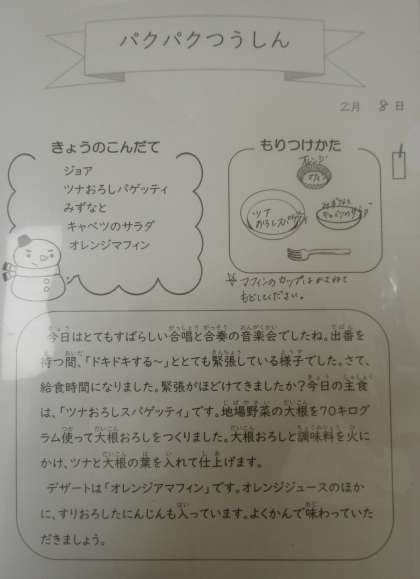 パクパクつうしん
2月 8日
きょうのこんだて
ジョア
ツナおろしパゲッティ
みずなと
キャベツのサラダ
オレンジマフィン
もりつけかた
オレンジ
マフィン
ツナ
おろしスパゲッティ
みずなと
キャベツのサラダ
※マフィンのカップはかさねて
もどしてください。
今日はとてもすばらしい合唱と合奏の音楽会でしたね。出番を
待つ間、「ドキドキする〜」ととても緊張している様子でした。さて、
給食時間になりました。緊張がほどけてきましたか?今日の主食
は、「ツナおろしスパゲッティ」です。地場野菜の大根を70キログ
ラム使って大根おろしをつくりました。大根おろしと調味料を火に
かけ、ツナと大根の葉を入れて仕上げます。
デザートは「オレンジアマフィン」です。オレンジジュースのほか
に、すりおろしたにんじんも入っています。よくかんで味わっていた
だきましょう。